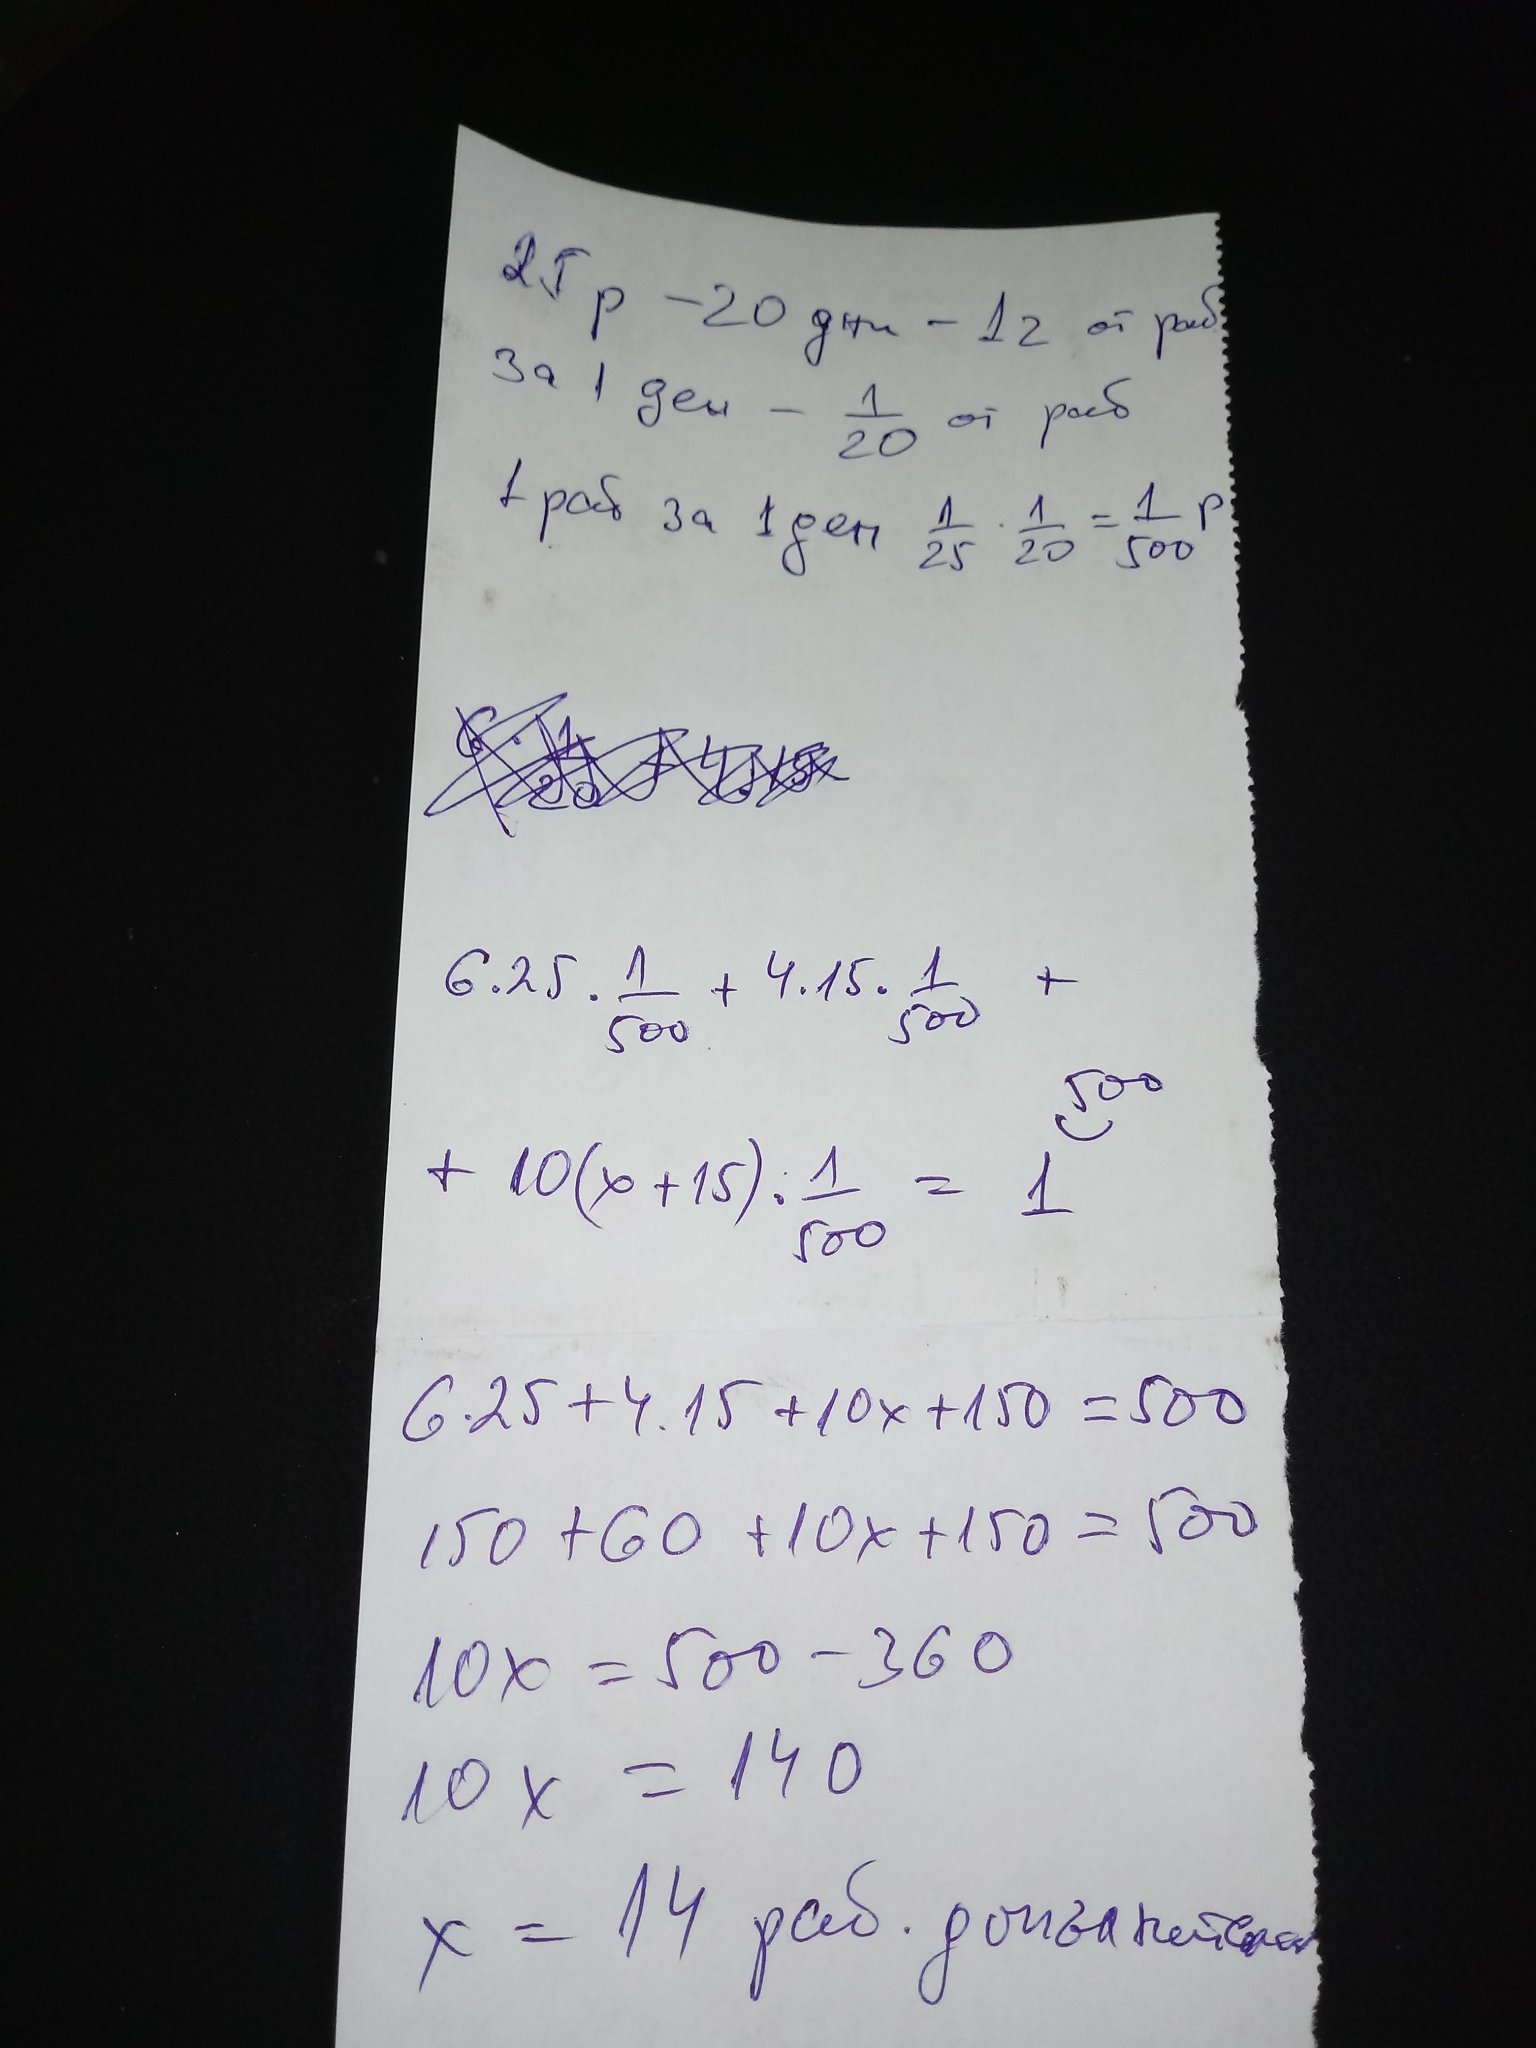 25 р - 20 дни - 1г от раб
За 1 ден - 1/20 от раб
1 раб за 1 ден 1/25 · 1/20 = 1/500 р
6.25 . 1/500 + 4.15 . 1/500 +
500
+ 10(x+15) . 1/500 = 1
6.25+4.15+10x+150=500
150+60+10x+150=500
10x = 500-360
10x = 140
x = 14 раб.